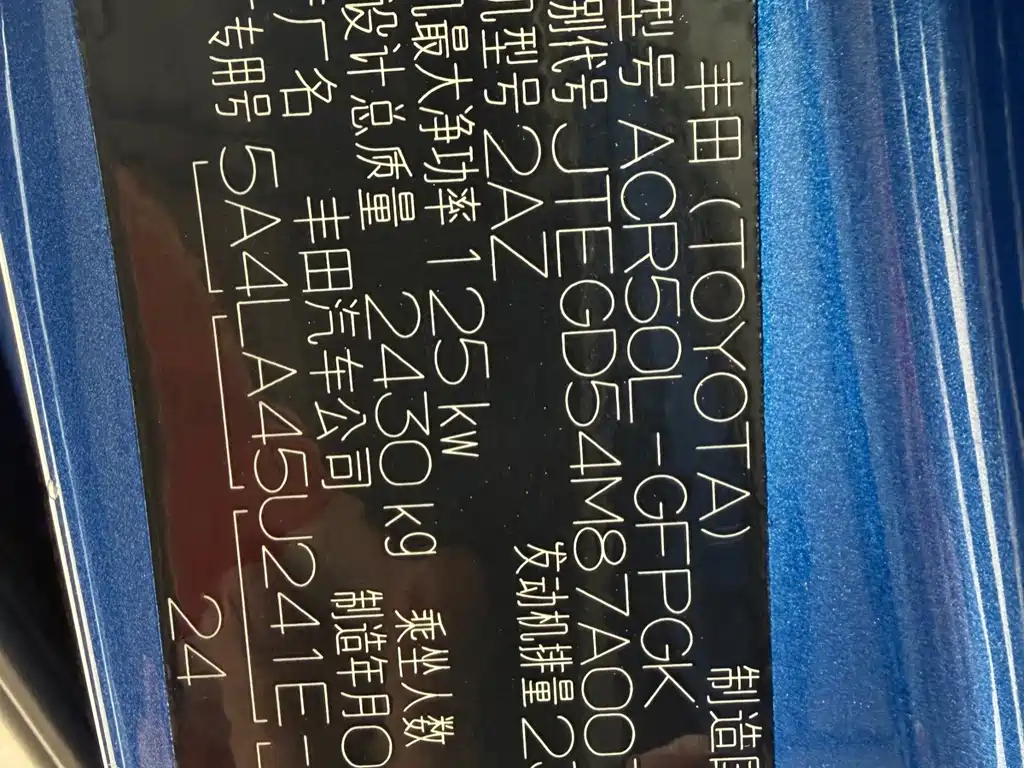 丰田(TOYOTA) 制造
型号 ACR50L-GFPGK
别代号 JTEGD54M87A00
型号 2AZ 发动机排量 2
最大净功率 125kw
设计总质量 2430kg 乘坐人数
厂名 丰田汽车公司 制造年月 0
专用号 5A4LA45U241E-
24